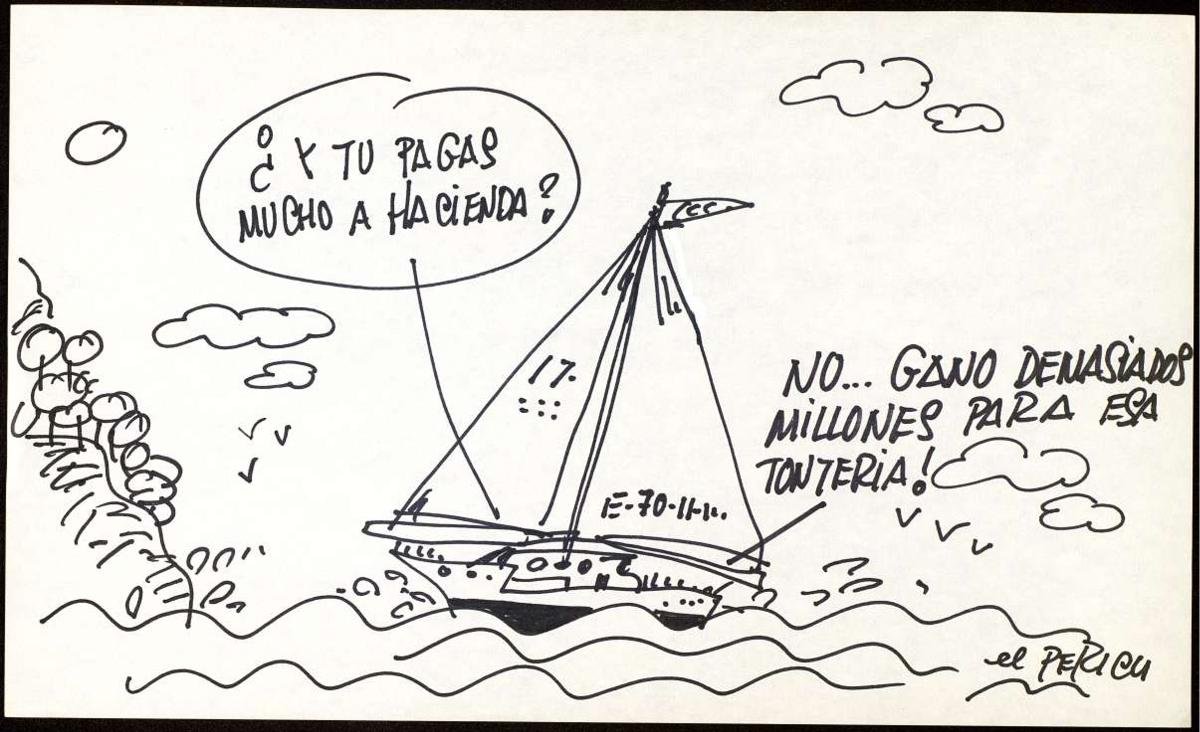 ¿Y TU PAGAS
MUCHO A HACIENDA?
17.
E-70-11-11.
NO... GANO DEMASIADOS
MILLONES PARA ESA
TONTERIA!
el PERICH